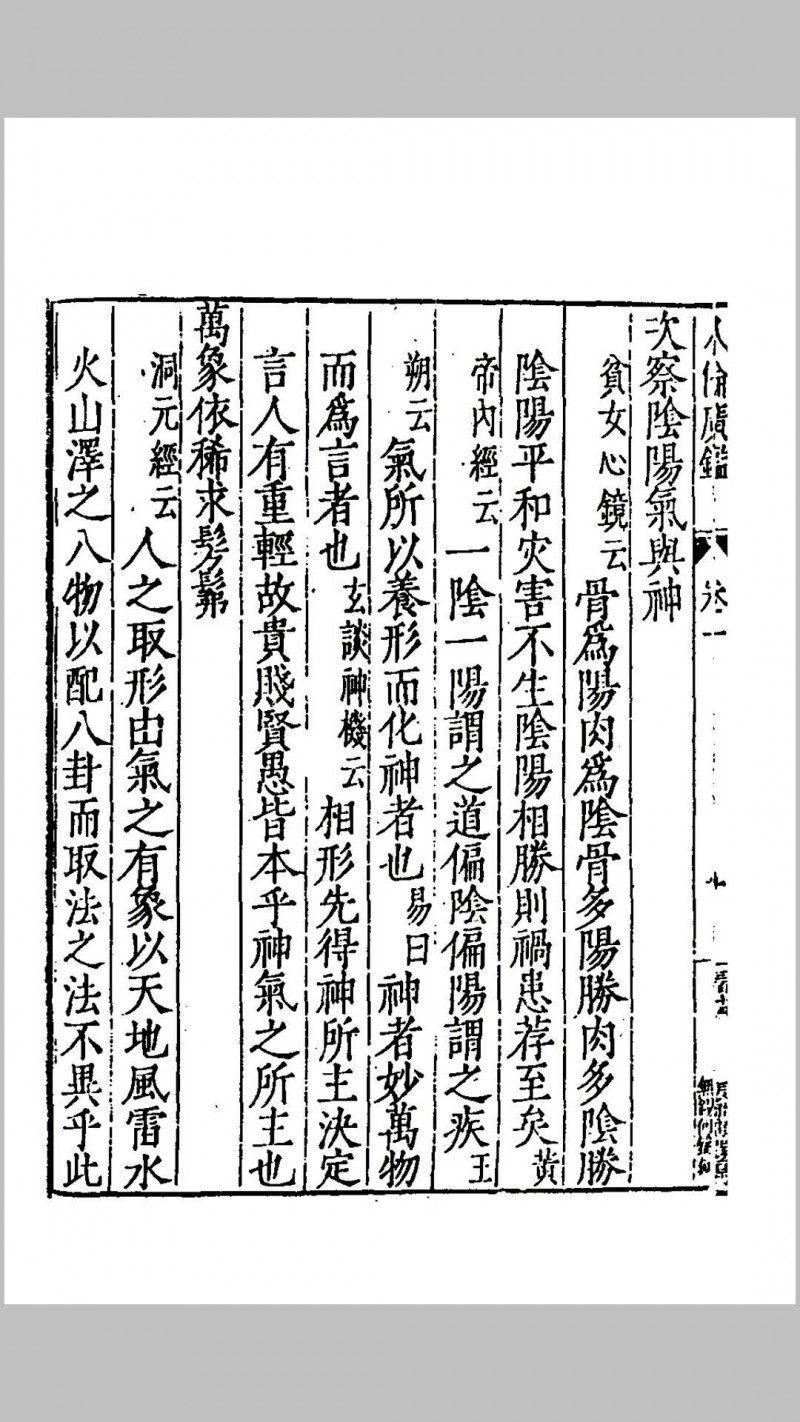 人倫廣鑑
卷一
次察陰陽氣與神
貧女心鏡云骨爲陽肉爲陰骨多陽勝肉多陰勝
陰陽平和灾害不生陰陽相勝則禍患荐至矣黃
帝內經云一陰一陽謂之道偏陰偏陽謂之疾王
朔云氣所以養形而化神者也易曰神者妙萬物
而爲言者也玄談神機云相形先得神所主決定
言人有重輕故貴賤賢愚皆本乎神氣之所主也
萬象依稀求髣髴
洞元經云人之取形由氣之有象以天地風雷水
火山澤之八物以配八卦而取法之法不異乎此